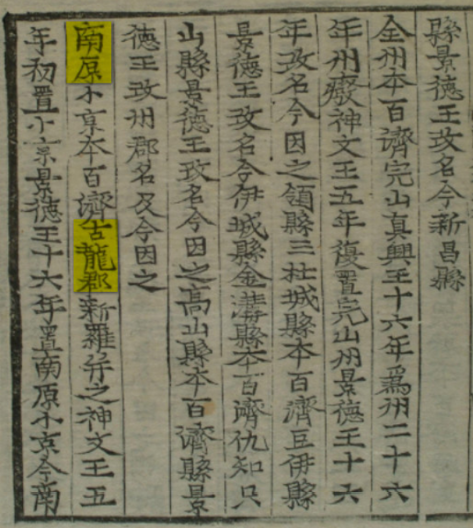 縣景德王改名今新昌縣
全州本百濟完山真興王十六年爲州二十六
年州廢神文王五年復置完山州景德王十六
年改名今因之領縣三杜城縣本百濟豆伊縣
景德王改名今伊城縣金溝縣本百濟仇知只
山縣景德王改名今因之高山縣本百濟縣景
德王改州郡名及今因之
南原小京本百濟古龍郡新羅并之神文王五
年初置小京景德王十六年置南原小京今南